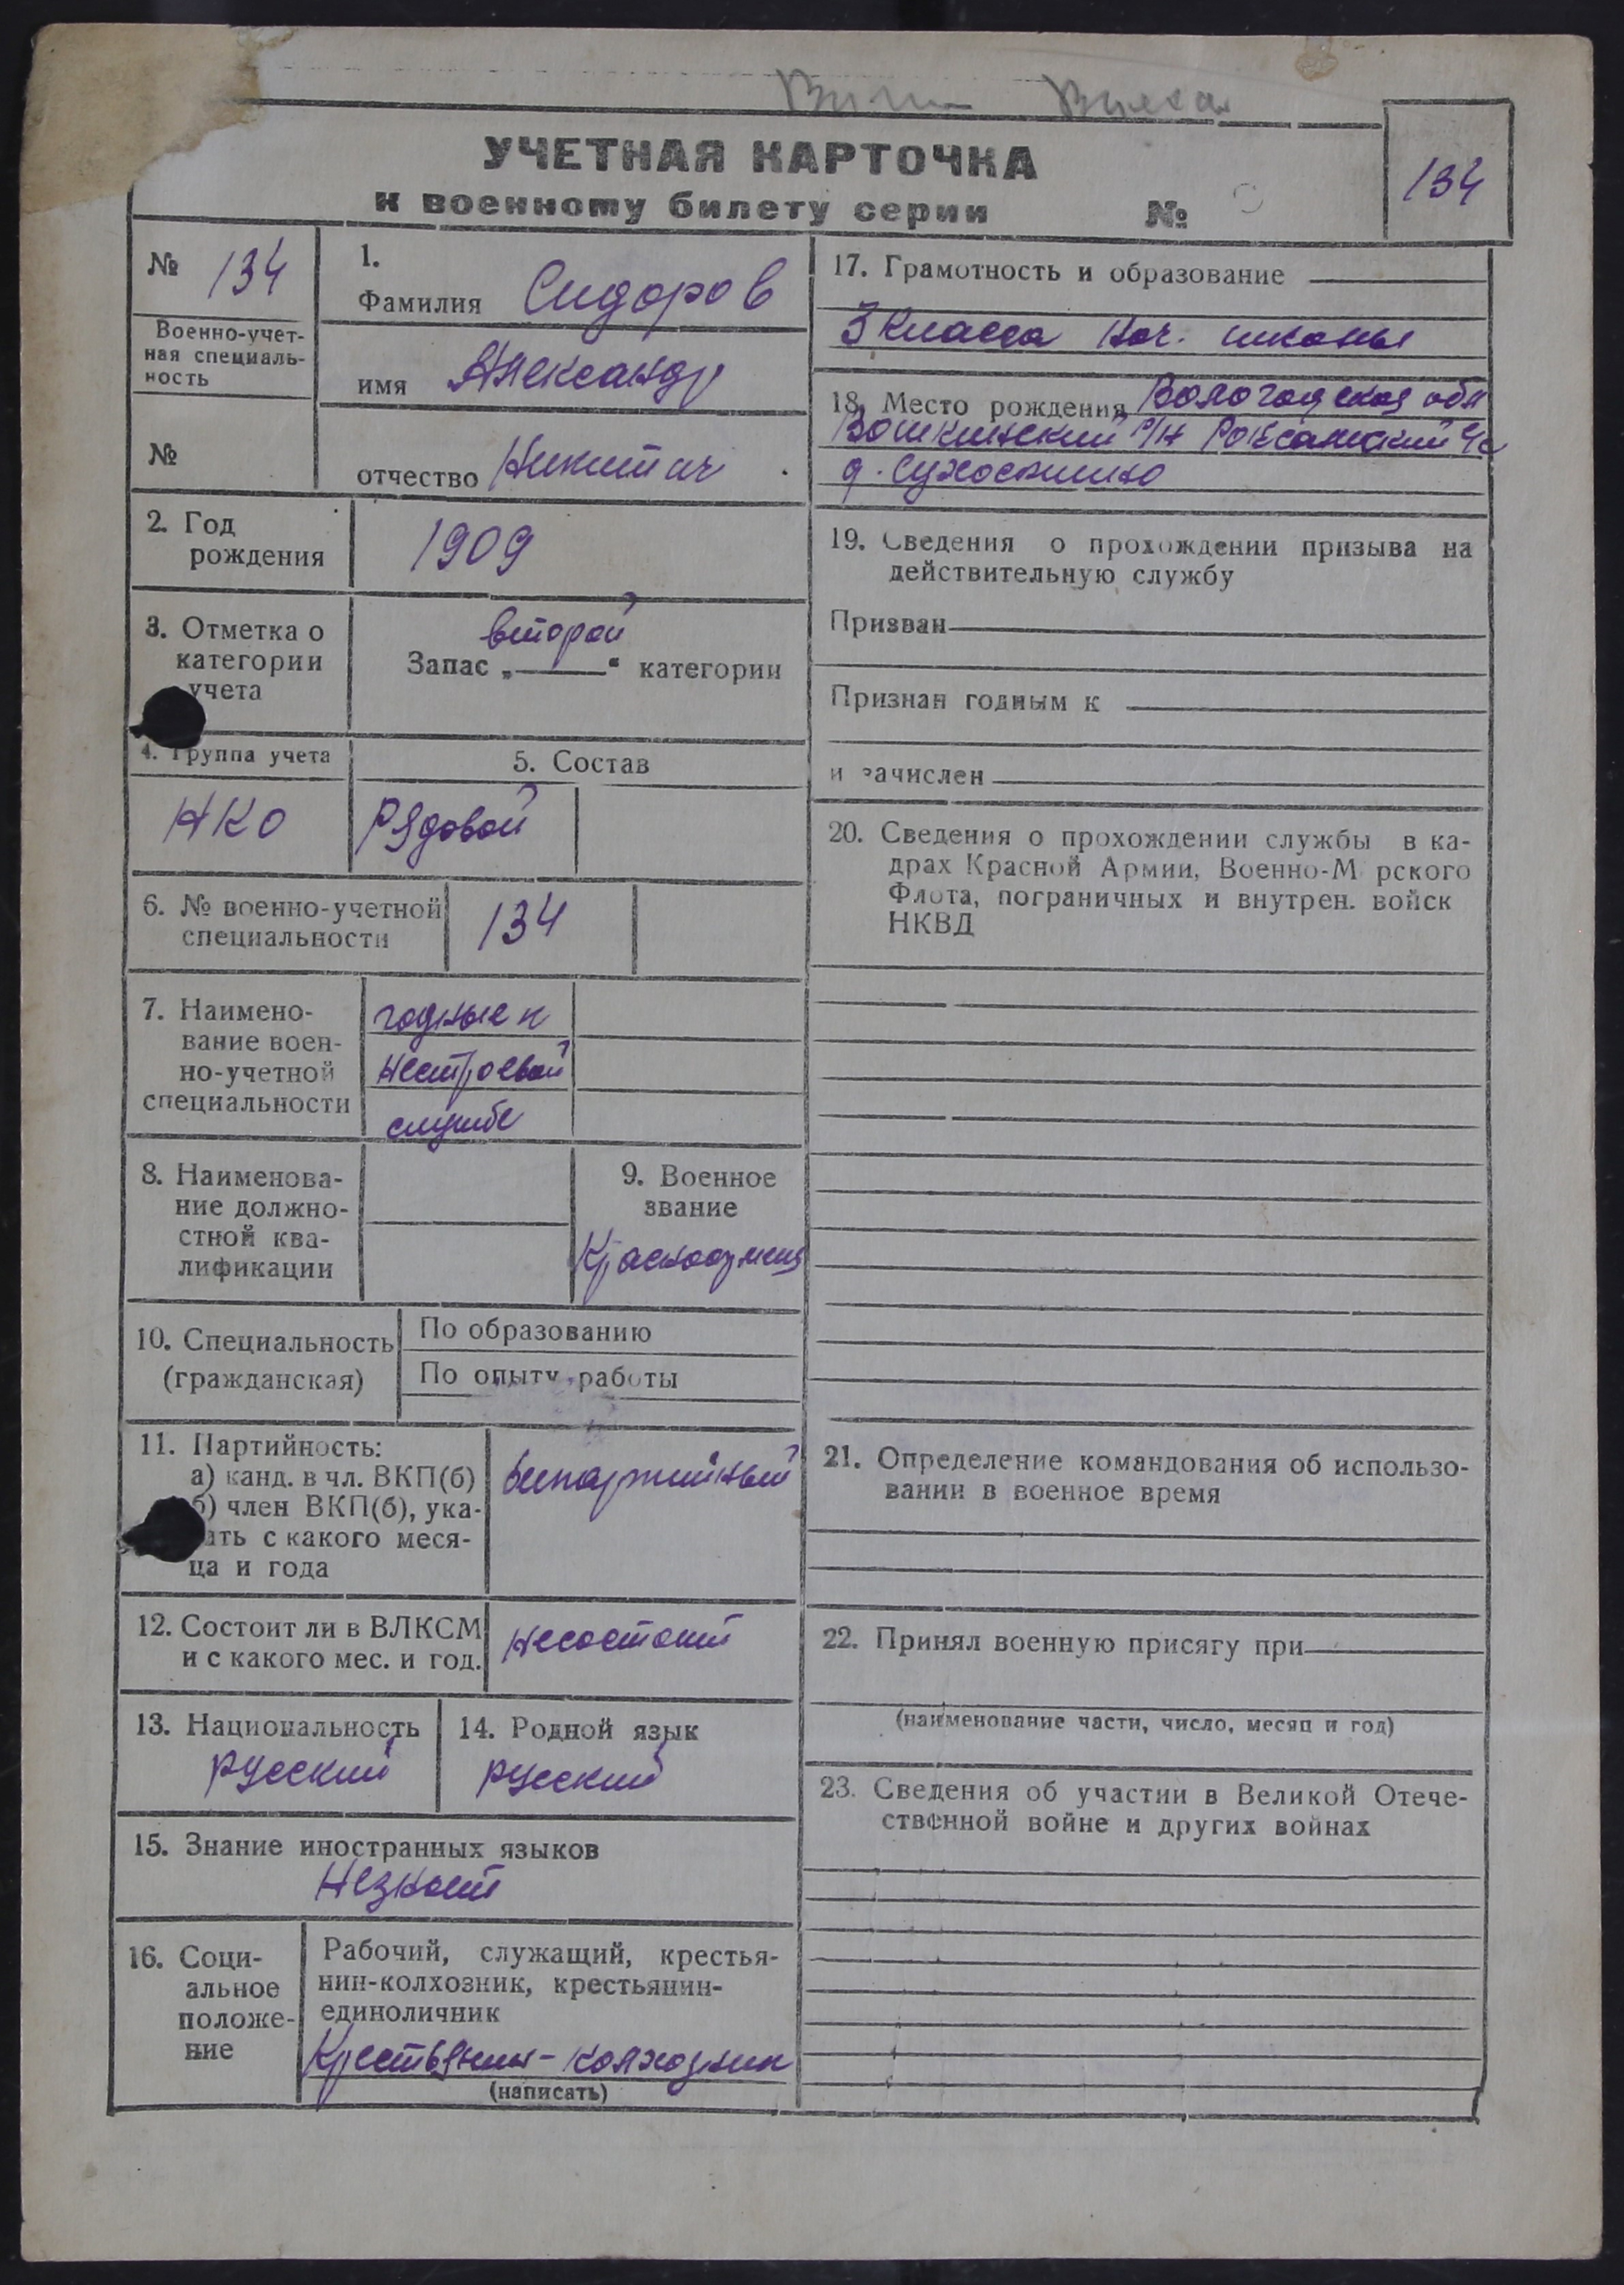 УЧЕТНАЯ КАРТОЧКА
к военному билету серии №
134
№ 134
Военно-учет-
ная специаль-
ность
№
1.
Фамилия Сидоров
имя Александр
отчество Никитич
2. Год
рождения
1909
3. Отметка о
категории
учета
второй
Запас „ “ категории
4. Группа учета
НКО
5. Состав
Рядовой
6. № военно-учетной
специальности
134
7. Наимено-
вание воен-
но-учетной
специальности
годные к
нестроевой
службе
8. Наименова-
ние должно-
стной ква-
лификации
9. Военное
звание
Красноармеец
10. Специальность
(гражданская)
По образованию
По опыту работы
11. Партийность:
а) канд. в чл. ВКП(б)
б) член ВКП(б), ука-
ать с какого меся-
ца и года
беспартийный
12. Состоит ли в ВЛКСМ
и с какого мес. и год.
несостоит
13. Национальность
русский
14. Родной язык
русский
15. Знание иностранных языков
Незнает
16. Соци-
альное
положе-
ние
Рабочий, служащий, крестья-
нин-колхозник, крестьянин-
единоличник
Крестьянин-колхозник
(написать)
17. Грамотность и образование
3 класса нач. школы
18. Место рождения Вологодская обл
Вашкинский р/н
д.
19. Сведения о прохождении призыва на
действительную службу
Призван
Признан годным к
и зачислен
20. Сведения о прохождении службы в ка-
драх Красной Армии, Военно-М рского
Флота, пограничных и внутрен. войск
НКВД
21. Определение командования об использо-
вании в военное время
22. Принял военную присягу при
(наименование части, число, месяц и год)
23. Сведения об участии в Великой Отече-
ственной войне и других войнах